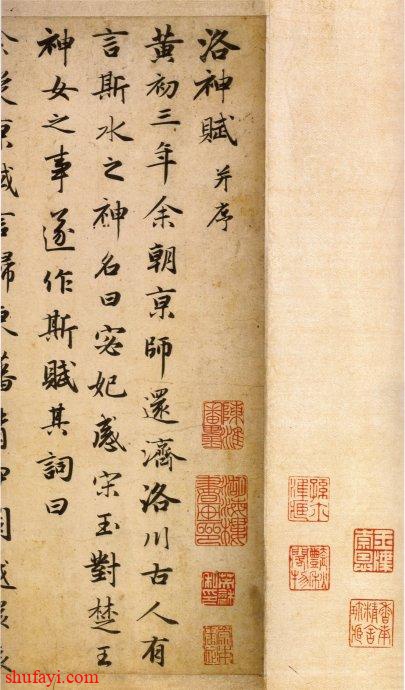 洛神賦 并序
黃初三年余朝京師還濟洛川古人有
言斯水之神名曰宓妃感宋玉對楚王
神女之事遂作斯賦其詞曰
余從京域言歸東藩背
shufayi.com